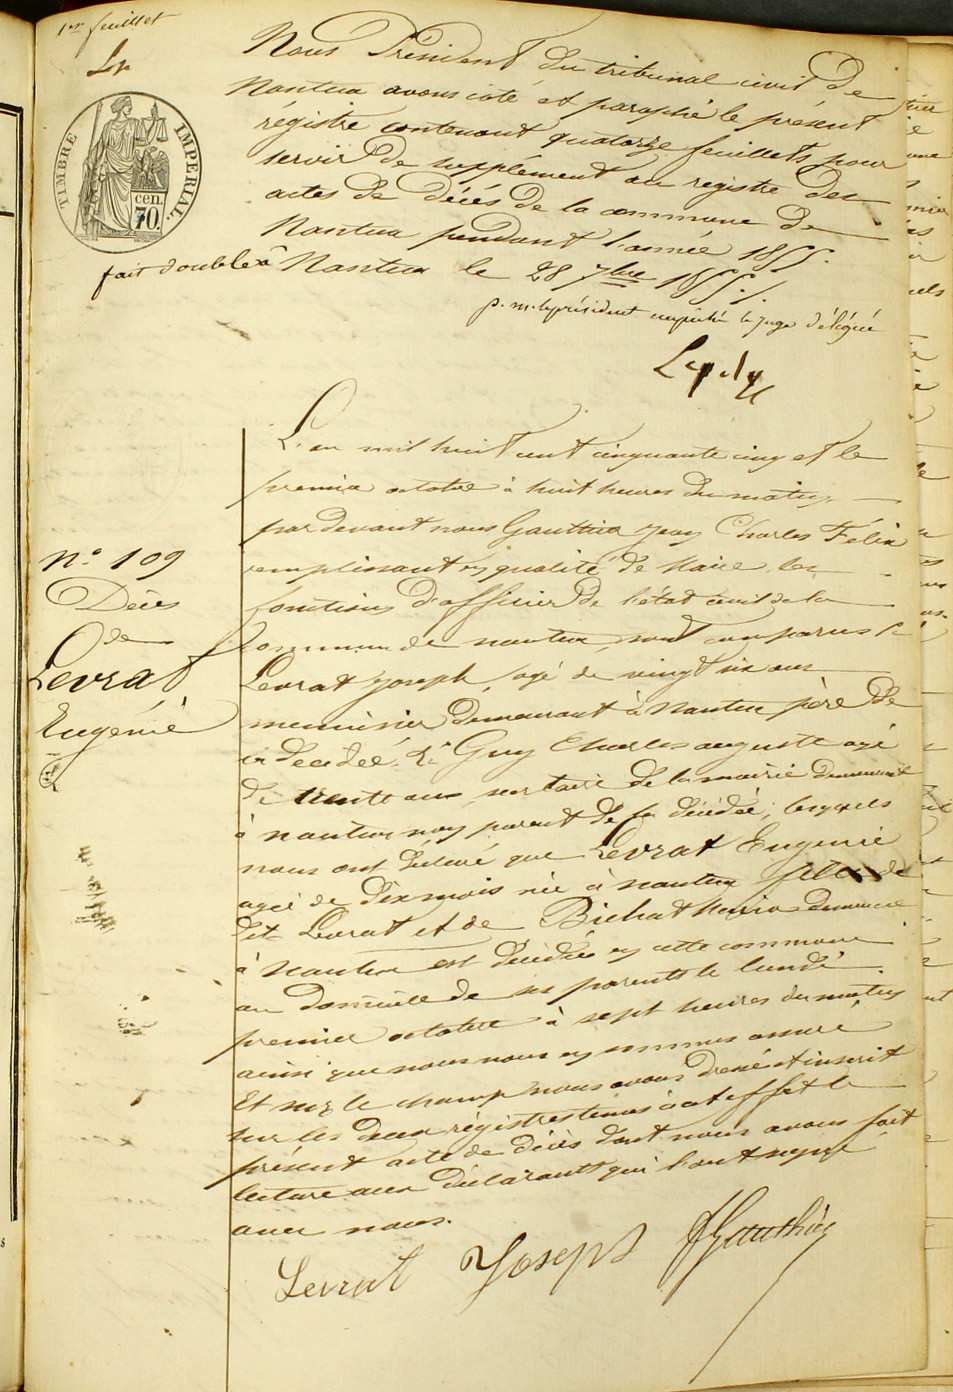 1er feuillet
Lp
TIMBRE IMPERIAL.
cen.
70.
Nous Président du tribunal civil de
Nantua avons coté et paraphé le présent
régistre contenant quatorze feuillets pour
servir de supplément au registre des
actes de décés de la commune de
Nantua pendant l'année 1855.
fait double à Nantua le 28 7bre 1855.
p. m. le président empêché le juge délégué
L'an mil huit cent cinquante cinq et le
premier octobre à huit heures du matin
par devant nous Gauthier Jean Charles Félix
remplissant en qualité de Maire les
fonctions d'officier de l'état civil de la
commune de nantua, sont comparus
Levrat Joseph, agé de vingt six ans
menuisier demeurant à Nantua père de
la décédée, & Guy Charles auguste agé
de trente ans, sectaire de la mairie demeurant
à nantua non parent de la décédée; lesquels
nous ont déclaré que Levrat Eugenie
agée de dix mois née à nantua fille de
dit Levrat et de Bichat Maria demeurant
à Nantua est décédée en cette commune
au domicile de ses parents le lundi
premier octobre à sept heures du matin
ainsi que nous nous en sommes assuré
Et sur le champ nous avons dressé et inscrit
sur les deux régistres tenus à cet effet le
présent acte de décès dont nous avons fait
lecture aux déclarants qui l'ont signé
avec nous.
N° 109
Décès
de
Levrat
Eugénie
Levrat Joseph JGauthier